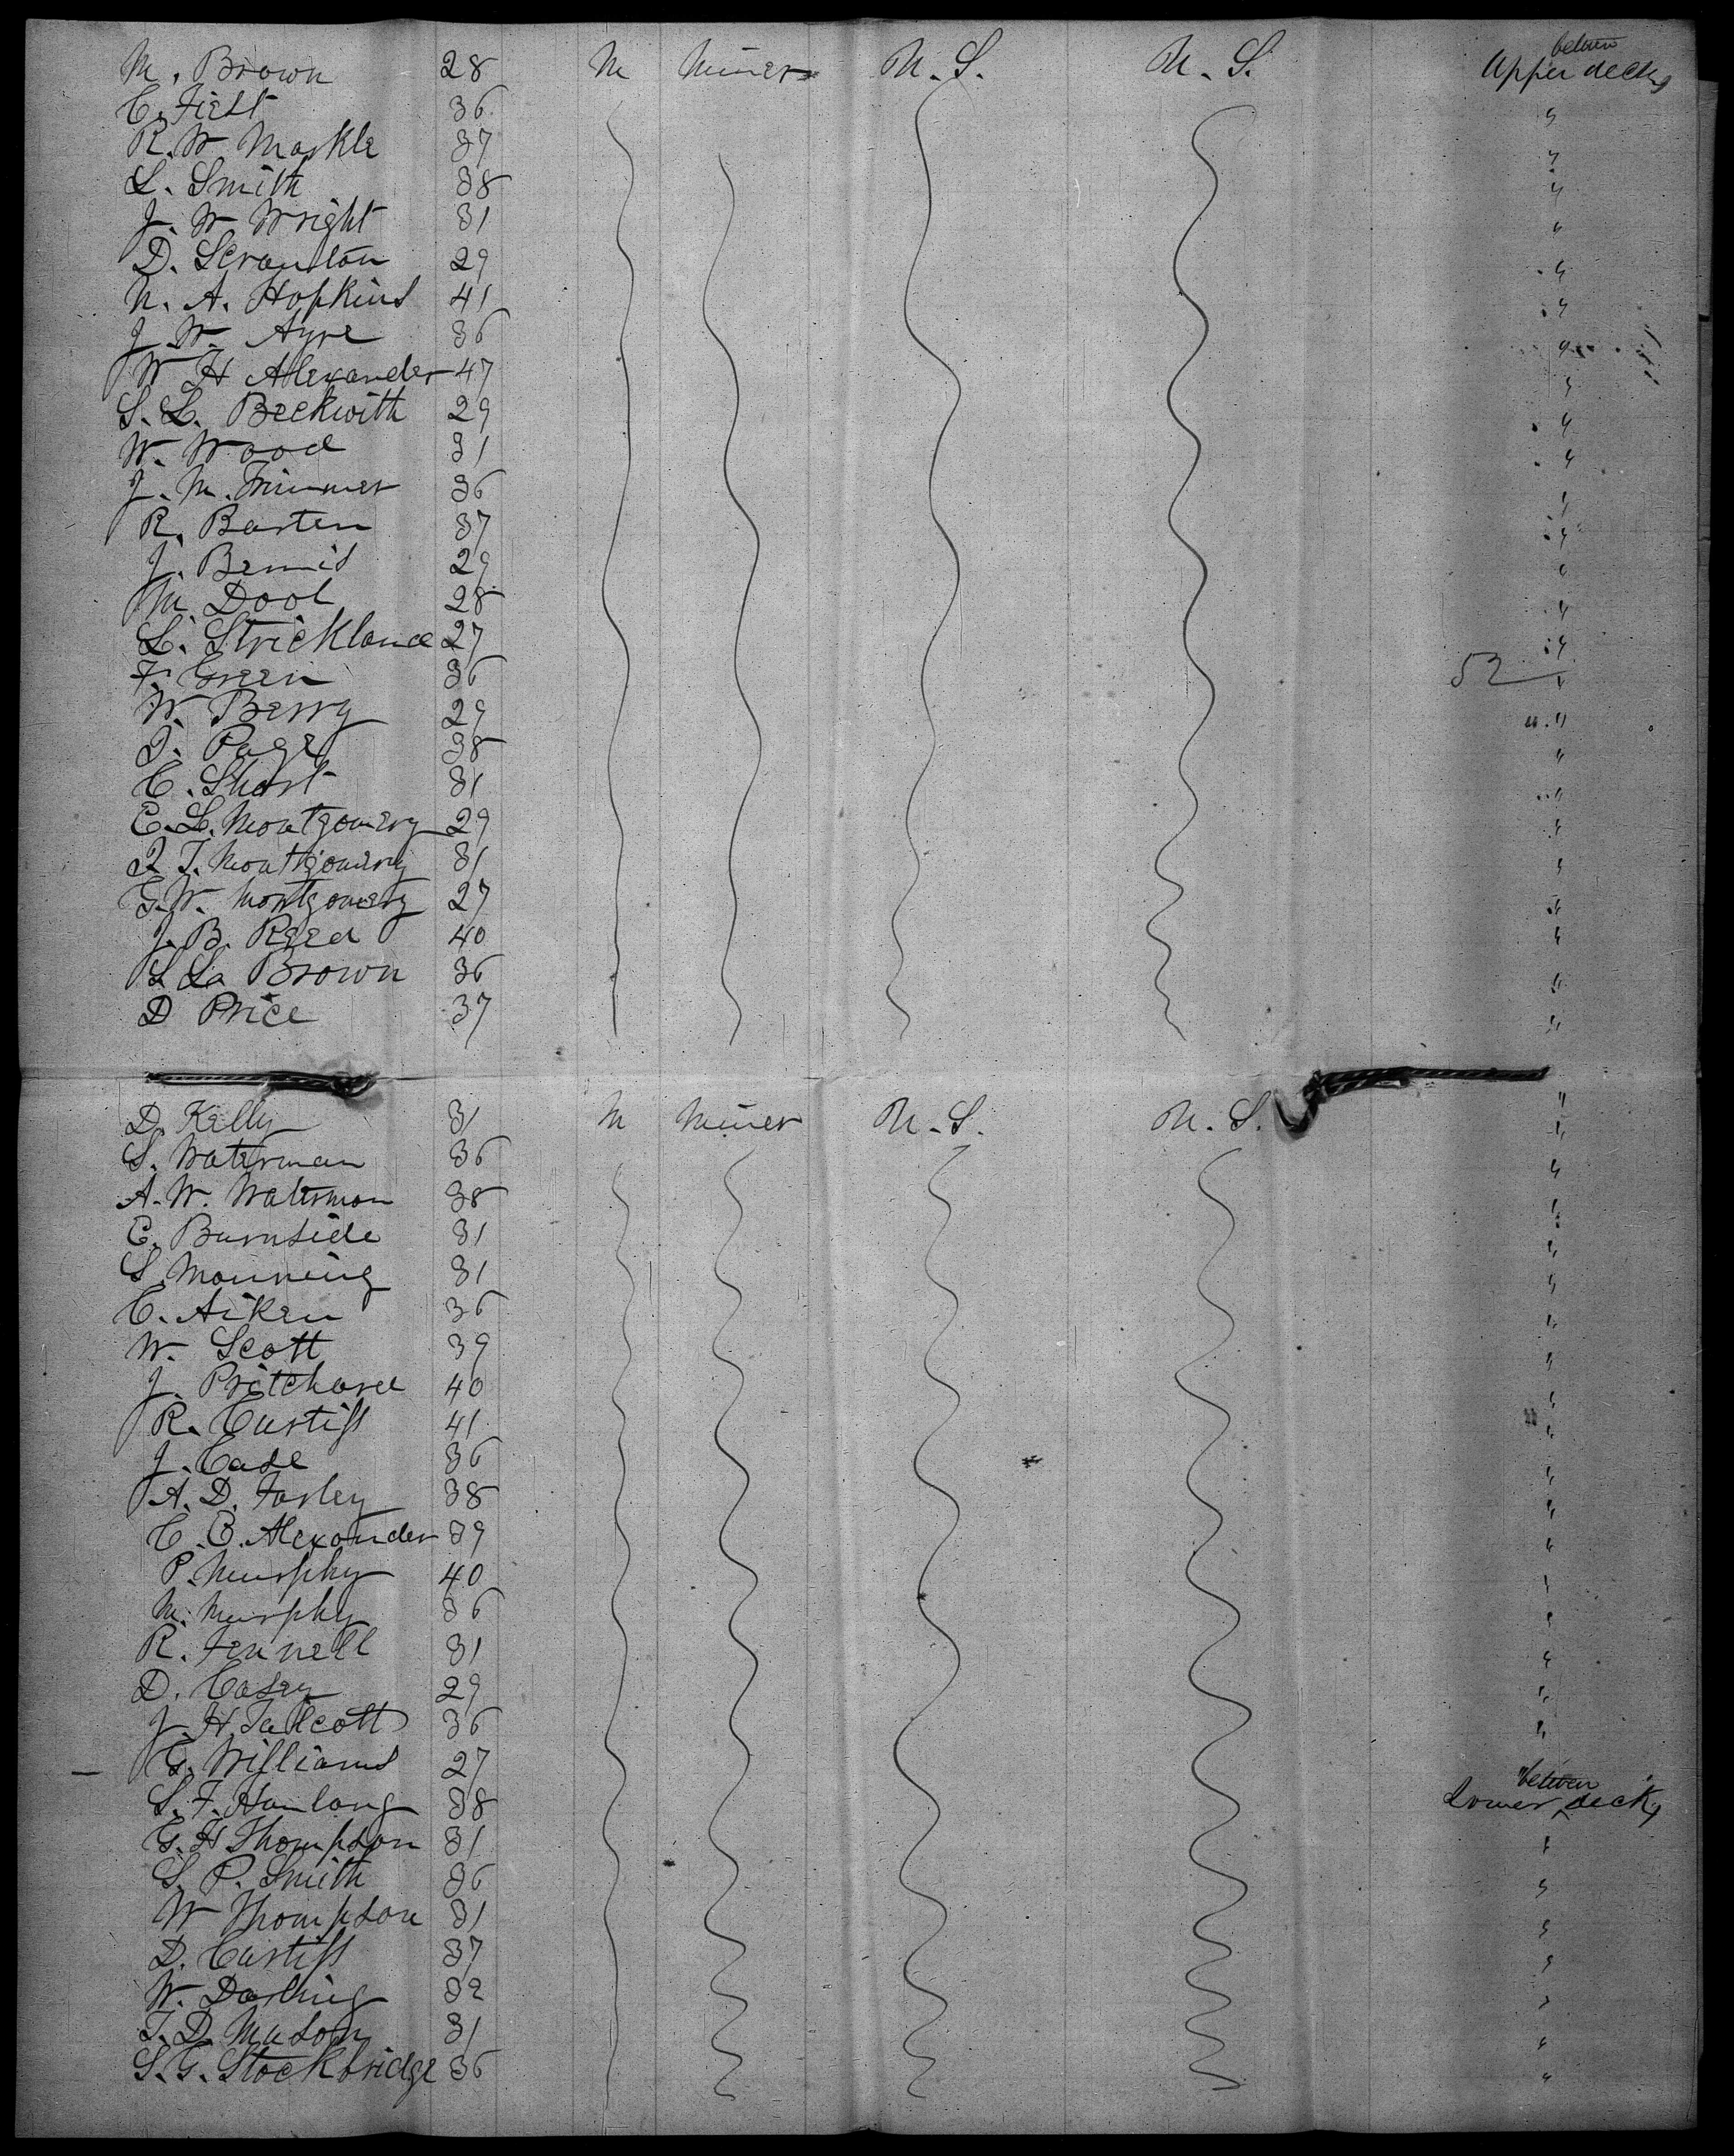 M. Brown 28 M Miner U.S. U.S. Upper between decks
C. Field 36 "
R. W Markle 37 "
L. Smith 38 "
J. W Wright 31 "
D. Scranton 29 "
N. A. Hopkins 41 "
J. W. Ayre 36 "
W H Alexander 47 "
S. L. Beckwith 29 "
W. Wood 31 "
J. M. Trimmer 36 "
R. Barten 37 "
J. Bemis 29 "
M. Dool 28 "
L. Strickland 27 "
F. Green 36 52 "
W. Berry 29 "
T. Page 38 "
C. Short 31 "
C. L. Montgomery 29 "
T. Montgomery 31 "
G. W. Montgomery 27 "
J. B. Reed 40 "
S L. Brown 36 "
D Price 37 "
D. Kelly 31 M Miner U.S. U.S. "
S. Waterman 36 "
A. W. Waterman 38 "
C. Burnside 31 "
S. Manning 31 "
C. Aiken 36 "
W. Scott 39 "
J. Pritchard 40 "
R. Curtiss 41 "
J. Case 36 "
A. D. Farley 38 "
C. C. Alexander 39 "
P. Murphy 40 "
M. Murphy 36 "
R. Fennell 31 "
D. Casey 29 "
J. H. Tallcott 36 "
G. Williams 27
S. F. Hanlong 38 Lower between decks
G. H Thompson 31 "
S. P. Smith 36 "
W Thompson 31 "
D. Curtiss 37 "
W. Darling 32 "
T. D. Mason 31 "
S. G. Stockbridge 36 "